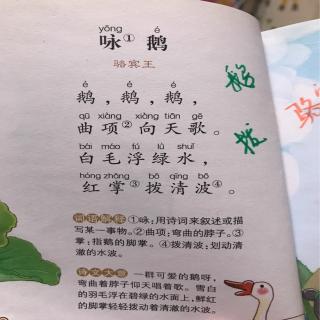 yǒng é
咏①鹅
骆宾王
é é é
鹅，鹅，鹅，
qū xiàng xiàng tiān gē
曲项②向天歌。
bái máo fú lǜ shuǐ
白毛浮绿水，
hóng zhǎng bō qīng bō
红掌③拨清波④。
词语解释 ①咏:用诗词来叙述或描
写某一事物。②曲项:弯曲的脖子。③
掌:指鹅的脚掌。④拨清波:划动清
澈的水波。
诗文大意 一群可爱的鹅呀，
弯曲着脖子仰天唱着歌。雪白
的羽毛浮在碧绿的水面上,鲜红
的脚掌轻轻拨动着清澈的水波。
鹅
拨
骆